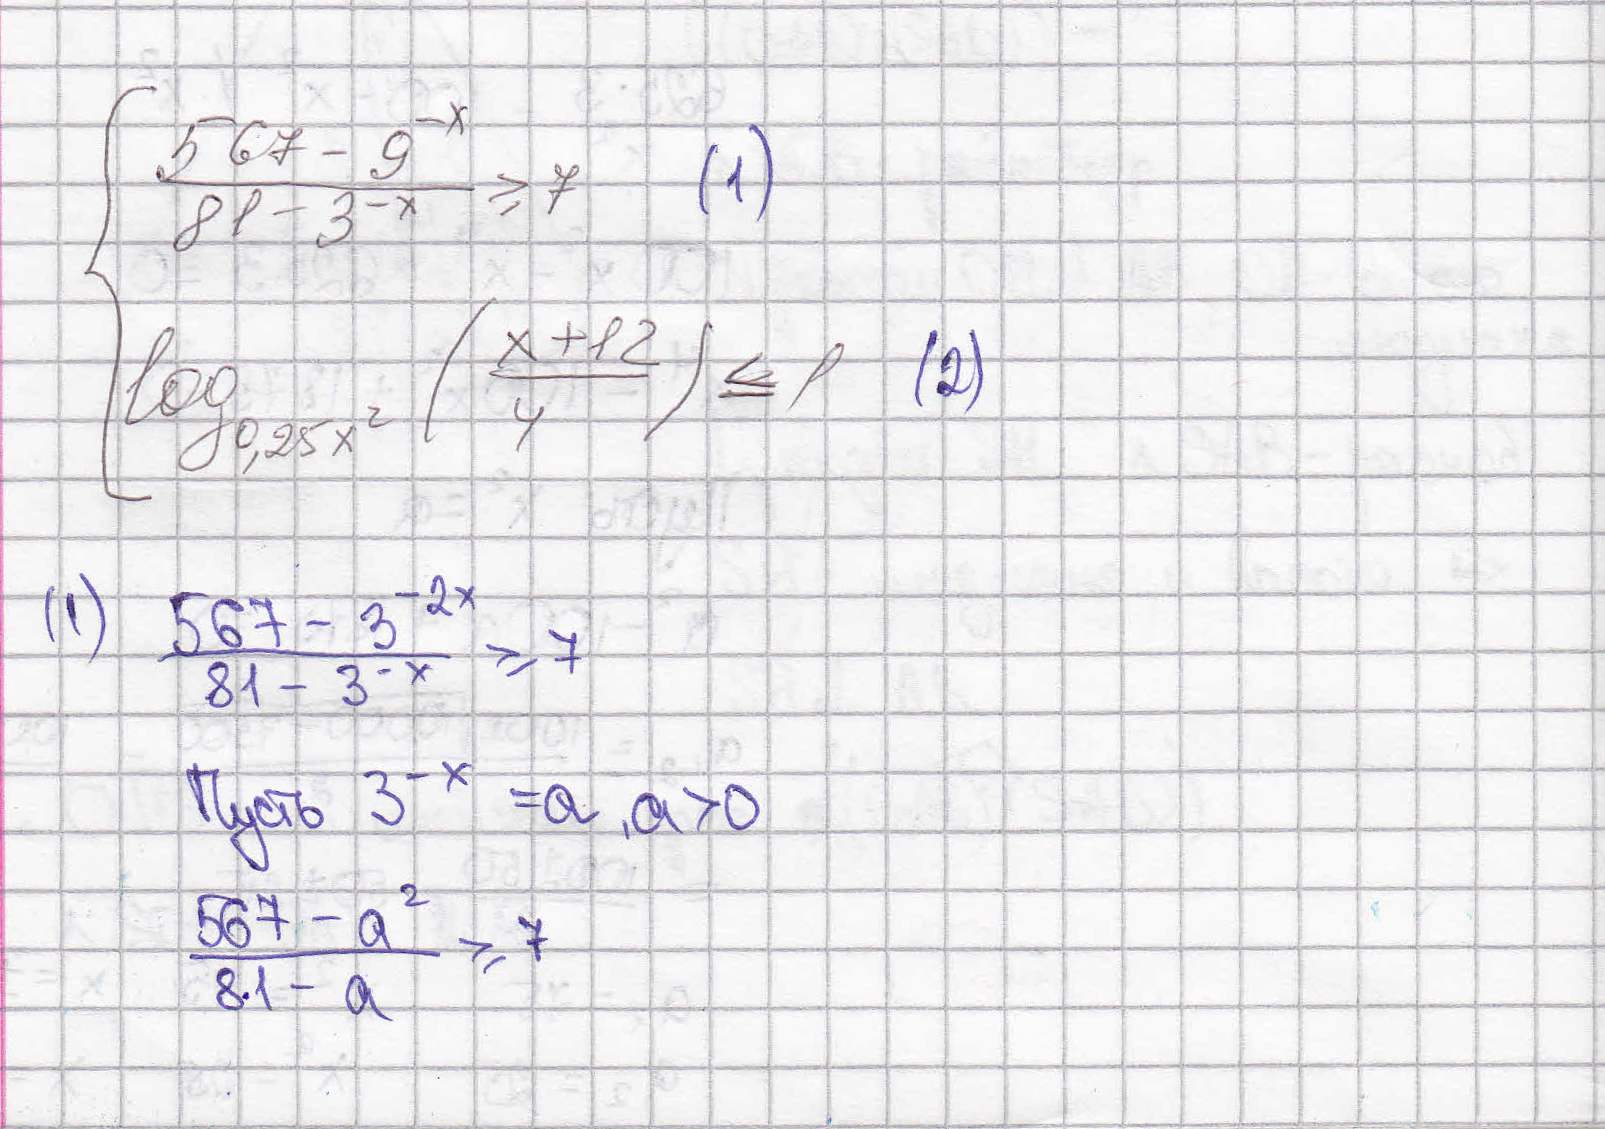 567 - 9^-x
81 - 3^-x ≥ 7 (1)
log_0,25x² (x+12 / 4) ≤ 1 (2)
(1) 567 - 3^-2x
81 - 3^-x ≥ 7
Пусть 3^-x = a, a > 0
567 - a²
81 - a ≥ 7